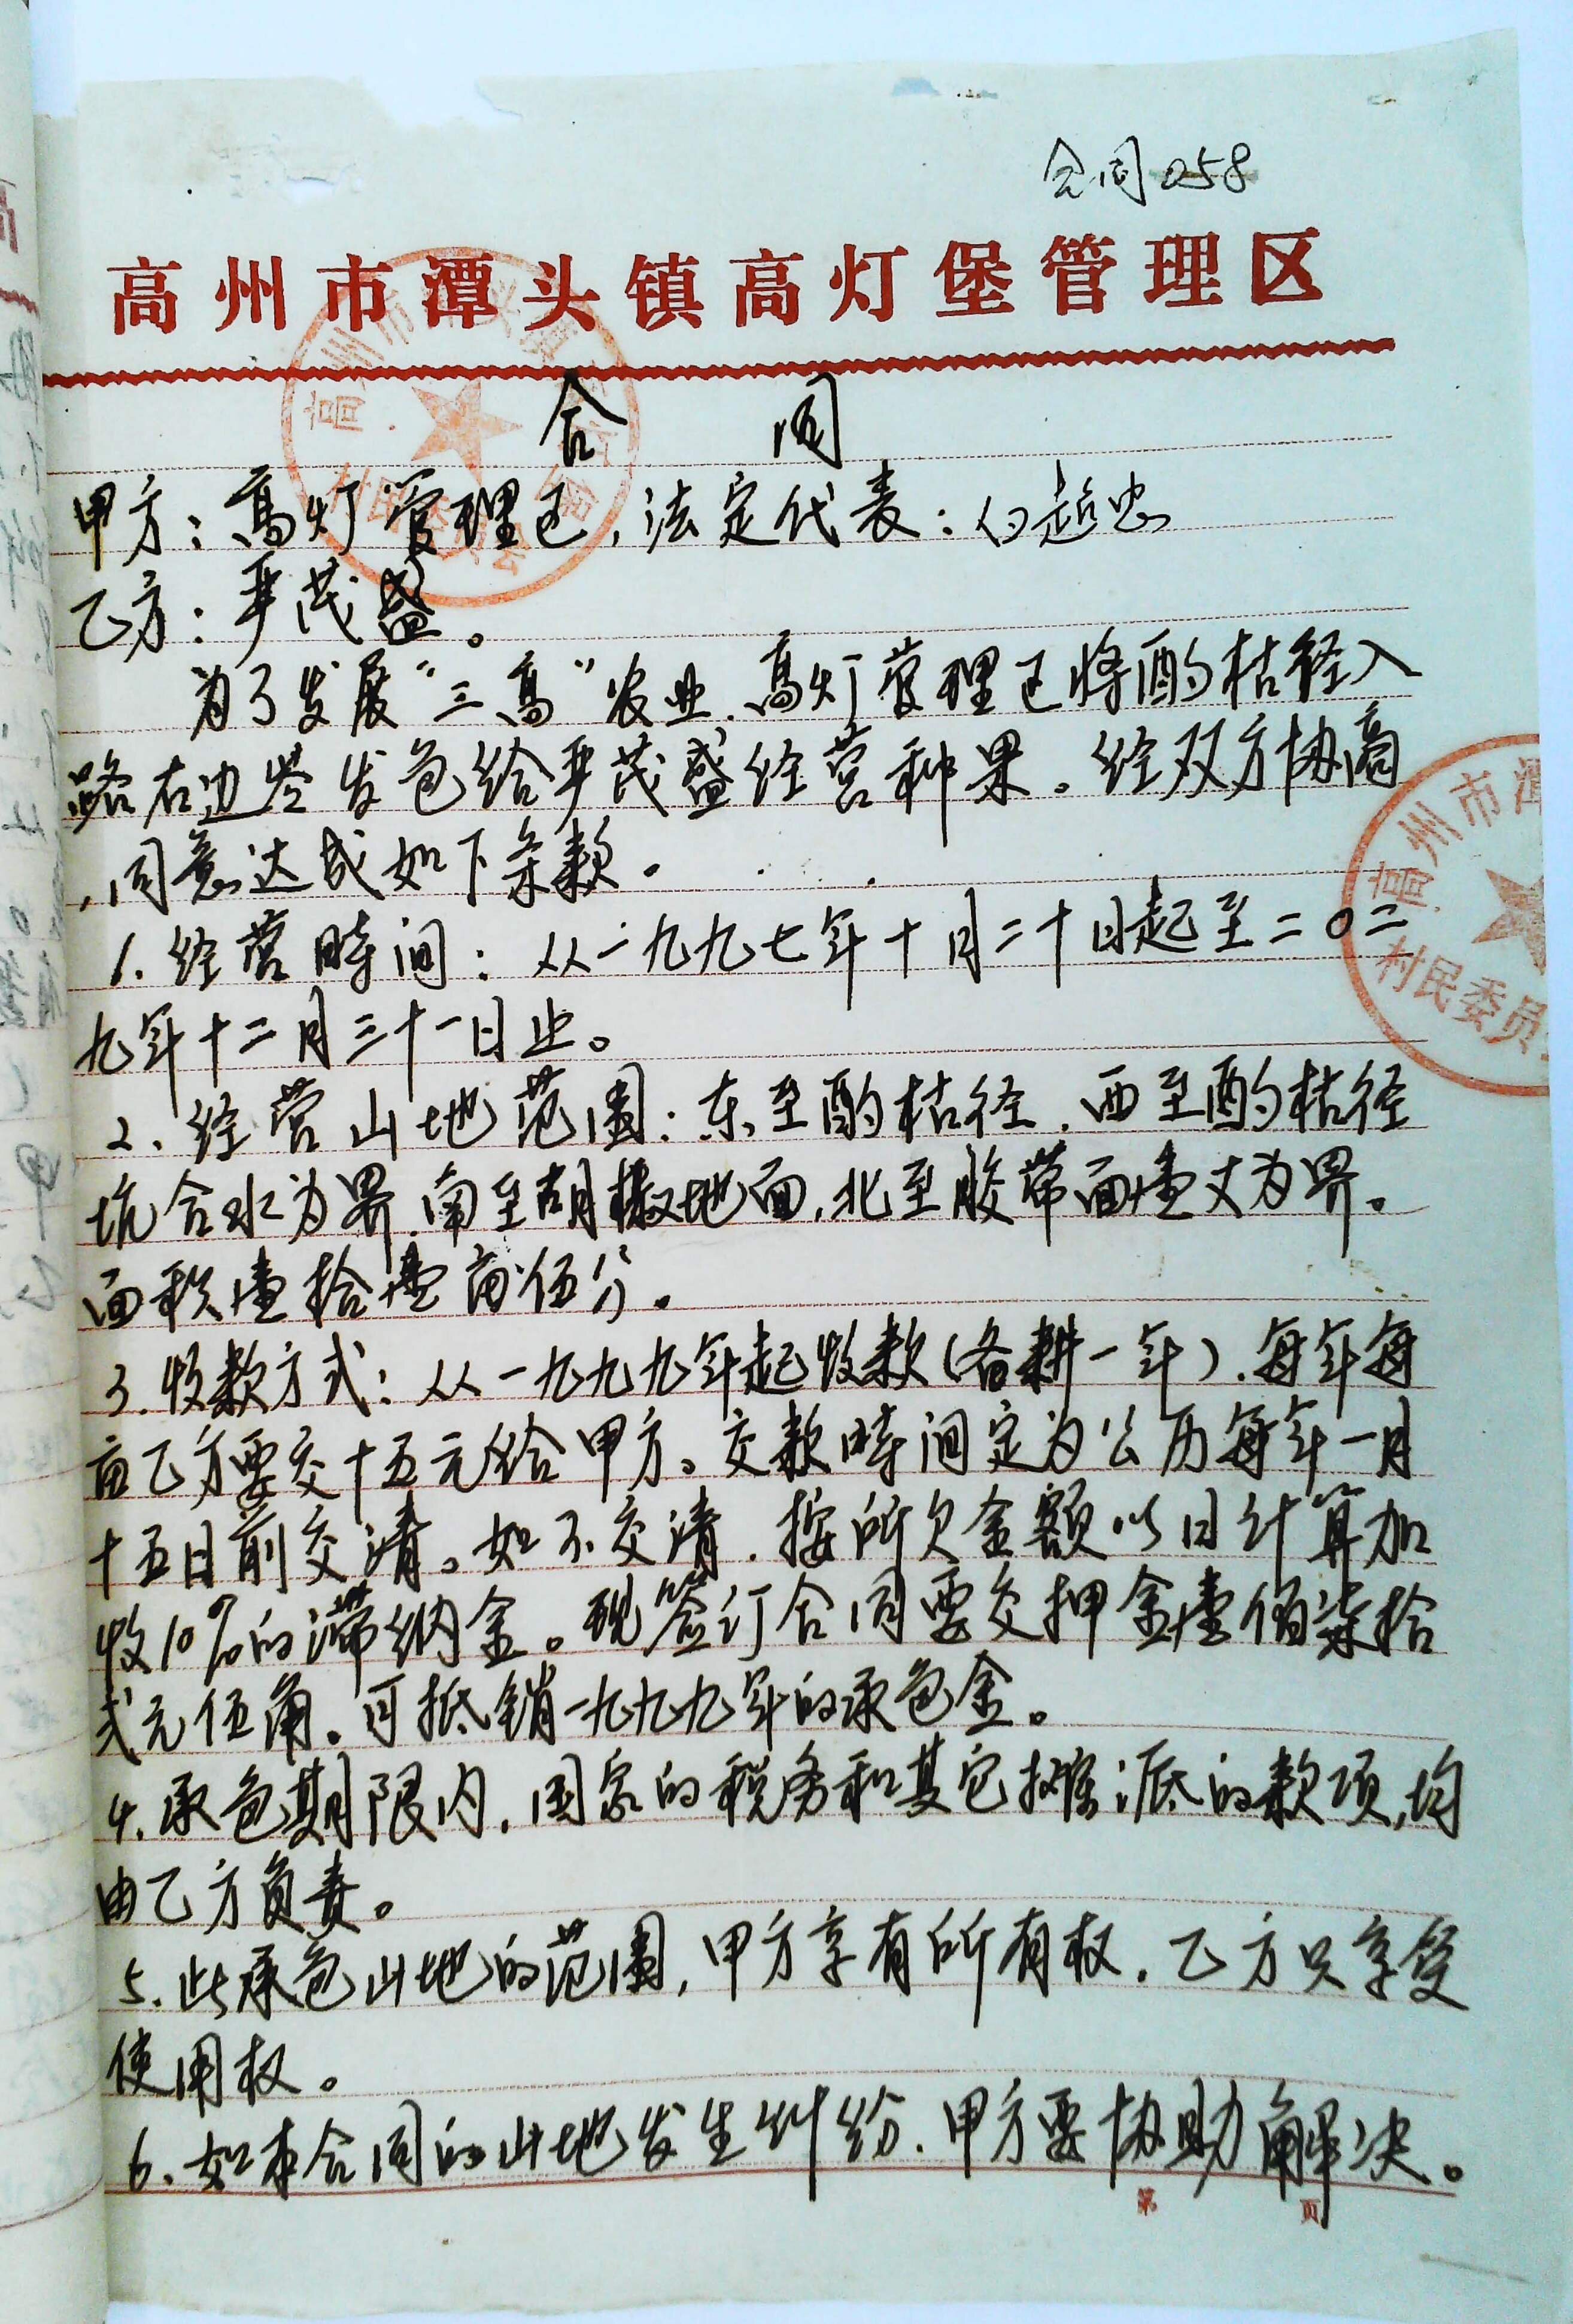 合同058
高州市潭头镇高灯堡管理区
合同
甲方：高灯管理区，法定代表：白超忠
乙方：严茂盛。
为了发展“三高”农业，高灯管理区将酌枯径入
路右边岺发包给严茂盛经营种果。经双方协商
，同意达成如下条款。
1.经营时间：从一九九七年十月二十日起至二0二
九年十二月三十一日止。
2、经营山地范围：东至酌枯径，西至酌枯径
坑合水为界，南至胡椒地面，北至胶带面壹丈为界。
面积壹拾壹亩伍分。
3.收款方式：从一九九九年起收款（备耕一年），每年每
亩乙方要交十五元给甲方。交款时间定为公历每年一月
十五日前交清。如不交清，按所欠金额以日计算加
收10%的滞纳金。现签订合同要交押金壹佰柒拾
弍元伍角。可抵销一九九九年的承包金。
4.承包期限内，国家的税务和其它摊派的款项，均
由乙方负责。
5.此承包山地的范围，甲方享有所有权，乙方只享受
使用权。
6、如本合同的山地发生纠纷，甲方要协助解决。
第 页
高州市潭
村民委员